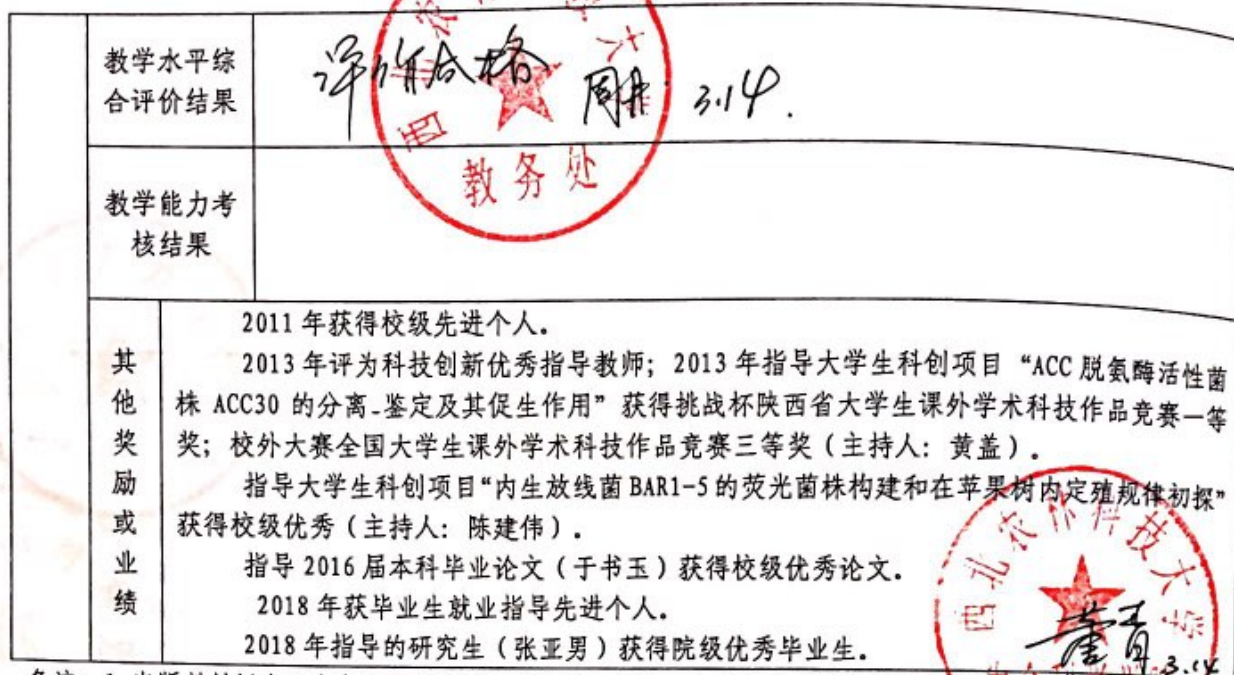 教学水平综
合评价结果
评价合格
3.14.
西北农林科技大学
教务处
教学能力考
核结果
其他奖励或业绩
2011年获得校级先进个人。
2013年评为科技创新优秀指导教师；2013年指导大学生科创项目 “ACC脱氨酶活性菌
株 ACC30 的分离-鉴定及其促生作用”获得挑战杯陕西省大学生课外学术科技作品竞赛一等
奖；校外大赛全国大学生课外学术科技作品竞赛三等奖（主持人：黄盖）。
指导大学生科创项目“内生放线菌BAR1-5的荧光菌株构建和在苹果树内定殖规律初探”
获得校级优秀（主持人：陈建伟）。
指导2016届本科毕业论文（于书玉）获得校级优秀论文。
2018年获毕业生就业指导先进个人。
2018年指导的研究生（张亚男）获得院级优秀毕业生。
西北农林科技大学
3.14